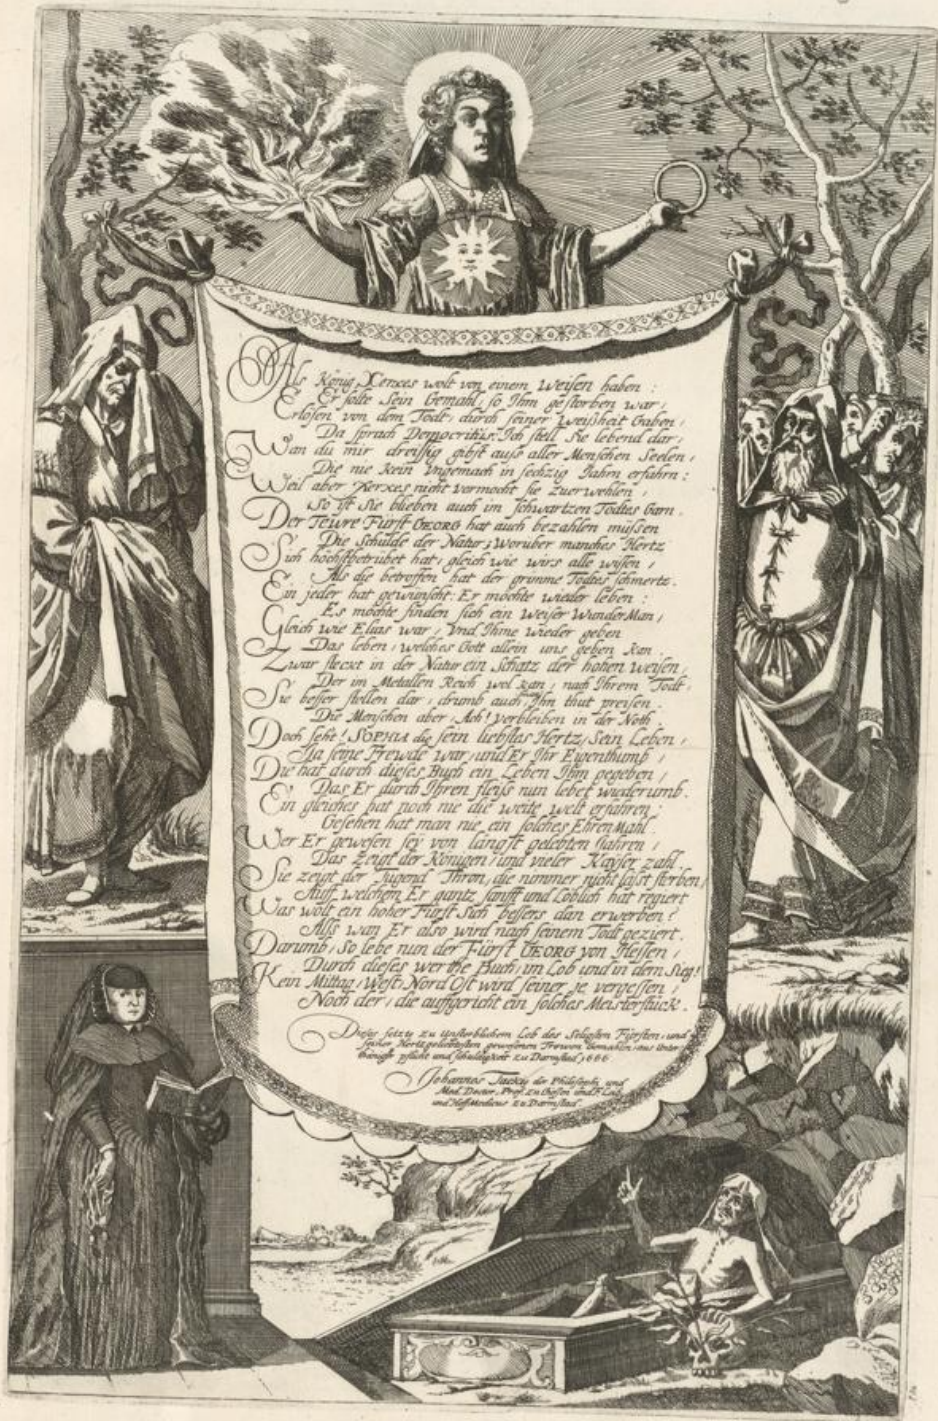 Als König Xerxes wolt von einem Weisen haben :
Er solte Sein Gemahl, so Ihm gestorben war,
Erlösen von dem Todt, durch seiner Weißheit Gaben,
Da sprach Democritus: Ich stell Sie lebend dar,
Wan du mir dreissig gibst auß aller Menschen Seelen,
Die nie kein Vngemach in sechzig Jahrn erfahrn :
Weil aber Xerxes nicht vermocht sie zuerwehlen,
So ist Sie blieben auch im schwartzen Todtes Garn.
Der Tewre Fürst GEORG hat auch bezahlen müssen
Die Schulde der Natur; Worüber manches Hertz
Sich höchstbetrübet hat, gleich wie wirs alle wissen,
Als die betroffen hat der grimme Todtes schmertz.
Ein jeder hat gewünscht: Er möchte wieder leben :
Es möchte finden sich ein Weiser Wunder Man,
Gleich wie Elias war, Vnd Ihme wieder geben
Das leben, welches Gott allein uns geben kan.
Zwar steckt in der Natur ein Schatz der hohen weisen,
Der im Metallen Reich wol kan, nach Ihrem Todt,
Sie besser stellen dar, drumb auch Ihn thut preisen.
Die Menschen aber, Ach! verbleiben in der Noth.
Doch seht! SOPHIA die sein liebstes Hertz, Sein Leben,
Ja seine Frewde war, und Er Ihr Eigenthumb,
Die hat durch dieses Buch ein Leben Ihm gegeben,
Das Er durch Ihren fleiß nun lebet wiederumb.
Ein gleiches hat noch nie die weite welt erfahren ;
Gesehen hat man nie ein solches Ehren Mahl.
Wer Er gewesen sey von längst gelebten Jahren,
Das zeigt der Königen, und vieler Kayser zahl.
Sie zeigt der Tugend Thron, die nimmer nicht läst sterben,
Auff welchem Er gantz sanfft und Löblich hat regiert
Was wolt ein hoher Fürst Sich bessers dan erwerben ?
Alß wan Er also wird nach seinem Todt geziert.
Darumb, So lebe nun der Fürst GEORG von Hessen,
Durch dieses werthe Buch, im Lob und in dem Sieg!
Kein Mittag, West, Nord, Ost wird seiner je vergessen,
Noch der, die auffgericht ein solches Meisterstück.
Dieses setzte zu Unsterblichem Lob des Seligsten Fürsten, und
seiner Hertzgeliebtesten gewesenen Frewen Gemahlin, aus Unter
thäniger pflicht und schuldigkeit zu Darmstad, 1666
Johannes Tackij der Philosoph. und
Med. Doctor, Prof. zu Giesen und F. Leib
und Hoff Medicus zu Darmstad